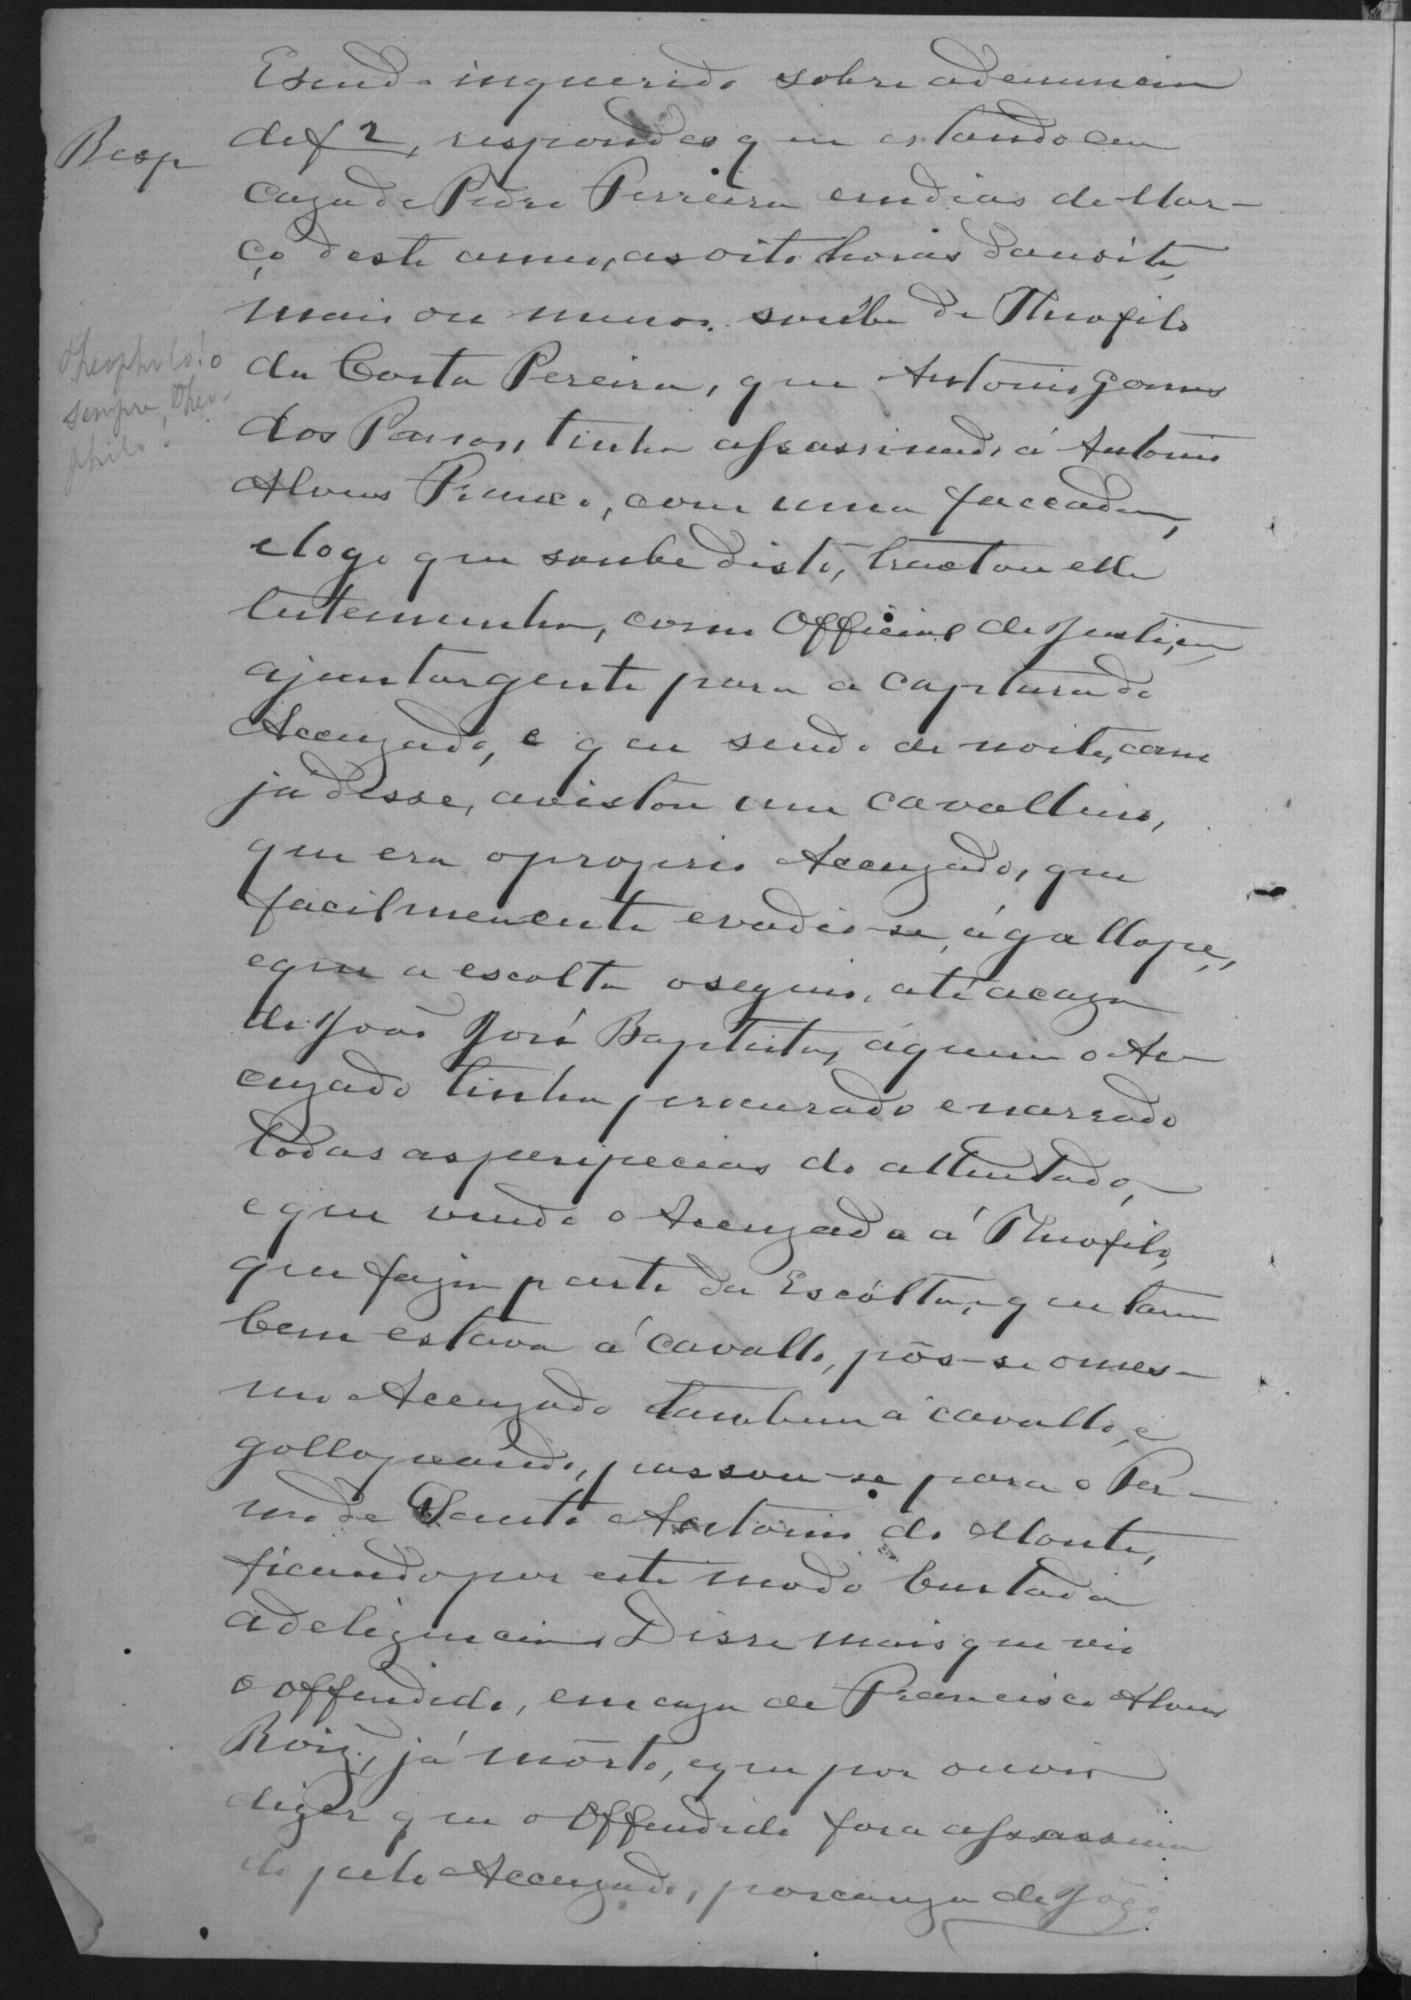 Esendo inquerido sobre adenuncia
Resp
def 2, respondeo que estando em
caza de Pedro Ferreira em dias de Mar-
ço deste anno, as oito horas danoite,
mais ou menos. soube de Theofilo
da Costa Pereira, que Antonio Gomes
Theophilo! o
sempre, Theo-
philo!
dos Passos, tinha assassinado á Antonio
Alves Franco, com uma faccada,
elogo que soube disto, tractou elle
testemunha, como Official de Justiça,
ajuntargente para a captura do
Accuzado, e que sendo de noite, como
já disse, avistou um cavalleiro,
que era oproprio Accuzado, que
facilmenente evadio-se, ágallope,
eque a escolta oseguio, até acaza
de João José Baptista, áquem o Ac-
cuzado tinha procurado enarrado
todas asperipecias do attentado,
eque vendo o Accuzado á Theofilo,
que fazia parte da Escólta, e que tam
bem estava á cavallo, pôs-se omes-
mo Accuzado tambem á cavallo, e
gallopeando, passou-se para o Ter-
mo de Santo Antonio do Monte,
ficando por este modo burlada
adeligencia. Disse mais que vio
o offendido, em caza de Francisco Alves
Roiz, já môrto, eque por ouvir
dizer que o Offendido fora assassina
do pelo Accuzado, porcauza de Jôgo